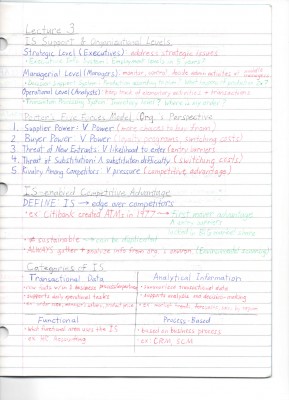 Lecture 3
IS Support & Organizational Levels
Strategic Level (Executives) address strategic issues
• Executive Info System: Employment levels in 5 years?
Managerial Level (Managers) monitor, control, decide admin activities of
• Decision Support System:
Operational Level (Analysts) Keep track of elementary activities + transactions
• Transaction Processing System: Inventory level? Where is my order?
Porter's Five Forces Model: Org.'s Perspective
1. Supplier Power: V Power (more choices to buy from)
2. Buyer Power: V Power (loyalty programs, switching costs)
3. Threat of New Entrants: V likelihood to enter (entry barriers)
4. Threat of Substitution: Λ substitution difficulty (switching costs)
5. Rivalry Among Competitors: V pressure (competitive advantage)
IS-enabled Competitive Advantage
DEFINE: IS → edge over competitors
• ex: Citibank created ATMs in 1977 → first mover advantage
Λ entry barriers
• ≠ sustainable → can be duplicated
• ALWAYS gather + analyze info from
Categories of IS
Transactional Data
Analytical Information
• raw data w/in a business process/reporting
• summarized transactional data
• supports daily operational tasks
• supports analysis and decision-making
Functional
Process-Based
• what functional area uses the IS
• based on business process
• ex: HR, Accounting
• ex: CRM, SCM